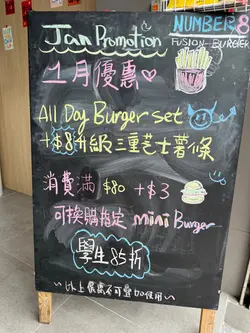 Jan Promotion
NUMBER 8
FUSION-BURGER
1月優惠
All Day Burger set
+$8升級三重芝士薯條
消費滿 $80 +$3
可換購指定 mini Burger
學生85折
~以上優惠不可疊加使用~